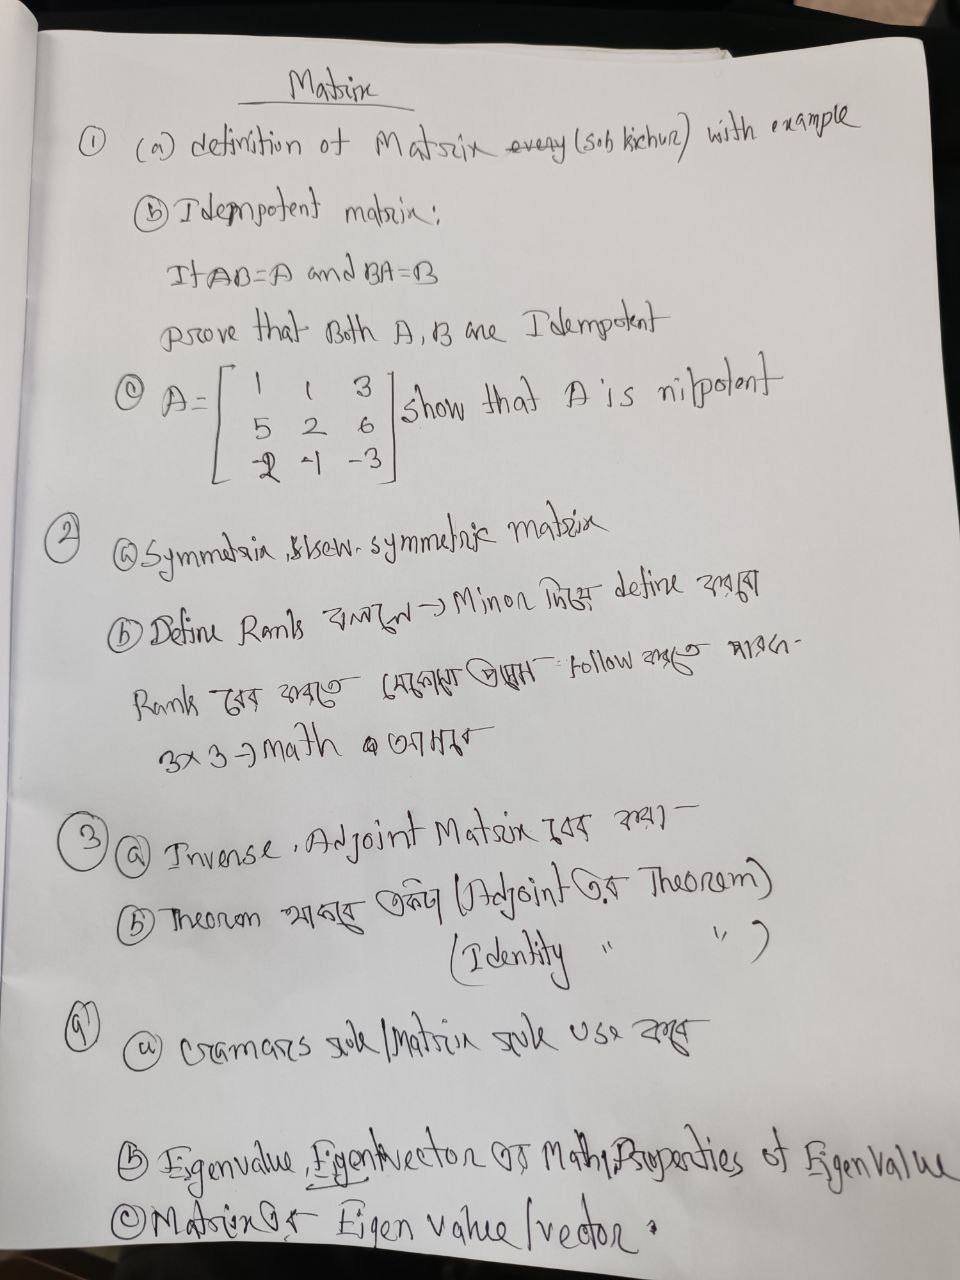 Matrix
① (a) definition of Matrix every (sob kichur) with example
ⓑ Idempotent matrix:
If AB=A and BA=B
prove that Both A, B are Idempotent
ⓒ A= [ 1 1 3
5 2 6
-2 -1 -3 ] show that A is nilpotent
② ⓐ Symmetric, skew-symmetric matrix
ⓑ Define Rank বললে → Minor দিয়ে define করবো
Rank বের করতে যেকোনো follow করতে পারবে-
3x3 → math আসবে
③ ⓐ Inverse, Adjoint Matrix বের করা-
ⓑ Theorem থাকবে একটা (Adjoint এর Theorem)
(Identity " ")
④ ⓐ cramars rule/Matrix rule use করে
ⓑ Eigenvalue, Eigenvector এর Math, Properties of Eigenvalue
ⓒ Matrix এর Eigen value/vector.